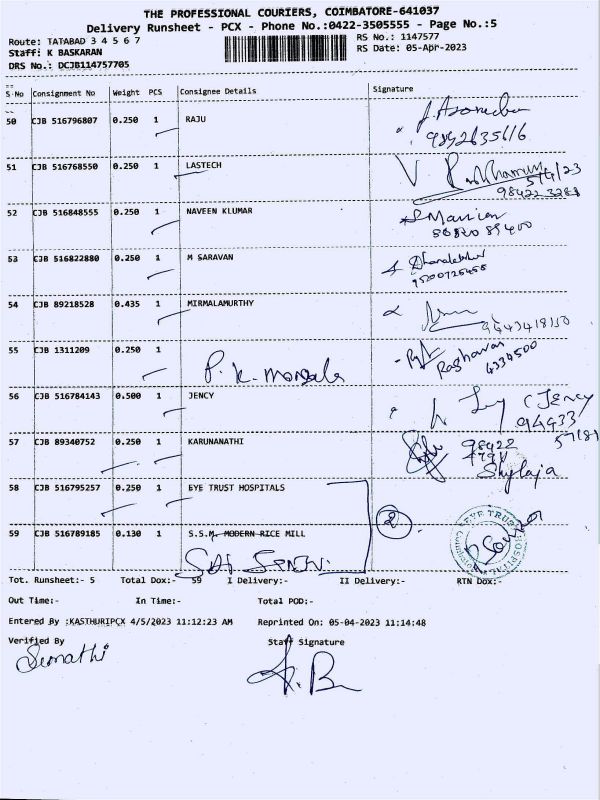 THE PROFESSIONAL COURIERS, COIMBATORE-641037
Delivery Runsheet - PCX - Phone No.:0422-3505555 - Page No.:5
Route: TATABAD 3 4 5 6 7
RS No.: 1147577
Staff: K BASKARAN
RS Date: 05-Apr-2023
DRS No.: DCJB114757705
S.No Consignment No Weight PCS Consignee Details Signature
50 CJB 516796807 0.250 1 RAJU
9892635616
51 CJB 516768550 0.250 1 LASTECH
5/4/23
98422 3288
52 CJB 516848555 0.250 1 NAVEEN KLUMAR
53 CJB 516822880 0.250 1 M SARAVAN
54 CJB 89218528 0.435 1 MIRMALAMURTHY
9443418150
55 CJB 1311209 0.250 1 P. K. Mangala
Raghavan
4334500
56 CJB 516784143 0.500 1 JENCY
(JENCY
94933
57181
57 CJB 89340752 0.250 1 KARUNANATHI
98422
Shylaja
58 CJB 516795257 0.250 1 EYE TRUST HOSPITALS
2
59 CJB 516789185 0.130 1 S.S.M. MODERN RICE MILL
Tot. Runsheet:- 5 Total Dox:- 59 I Delivery:- II Delivery:- RTN Dox:-
Out Time:- In Time:- Total POD:-
Entered By :KASTHURIPCX 4/5/2023 11:12:23 AM Reprinted On: 05-04-2023 11:14:48
Verified By Staff Signature
Sumathi